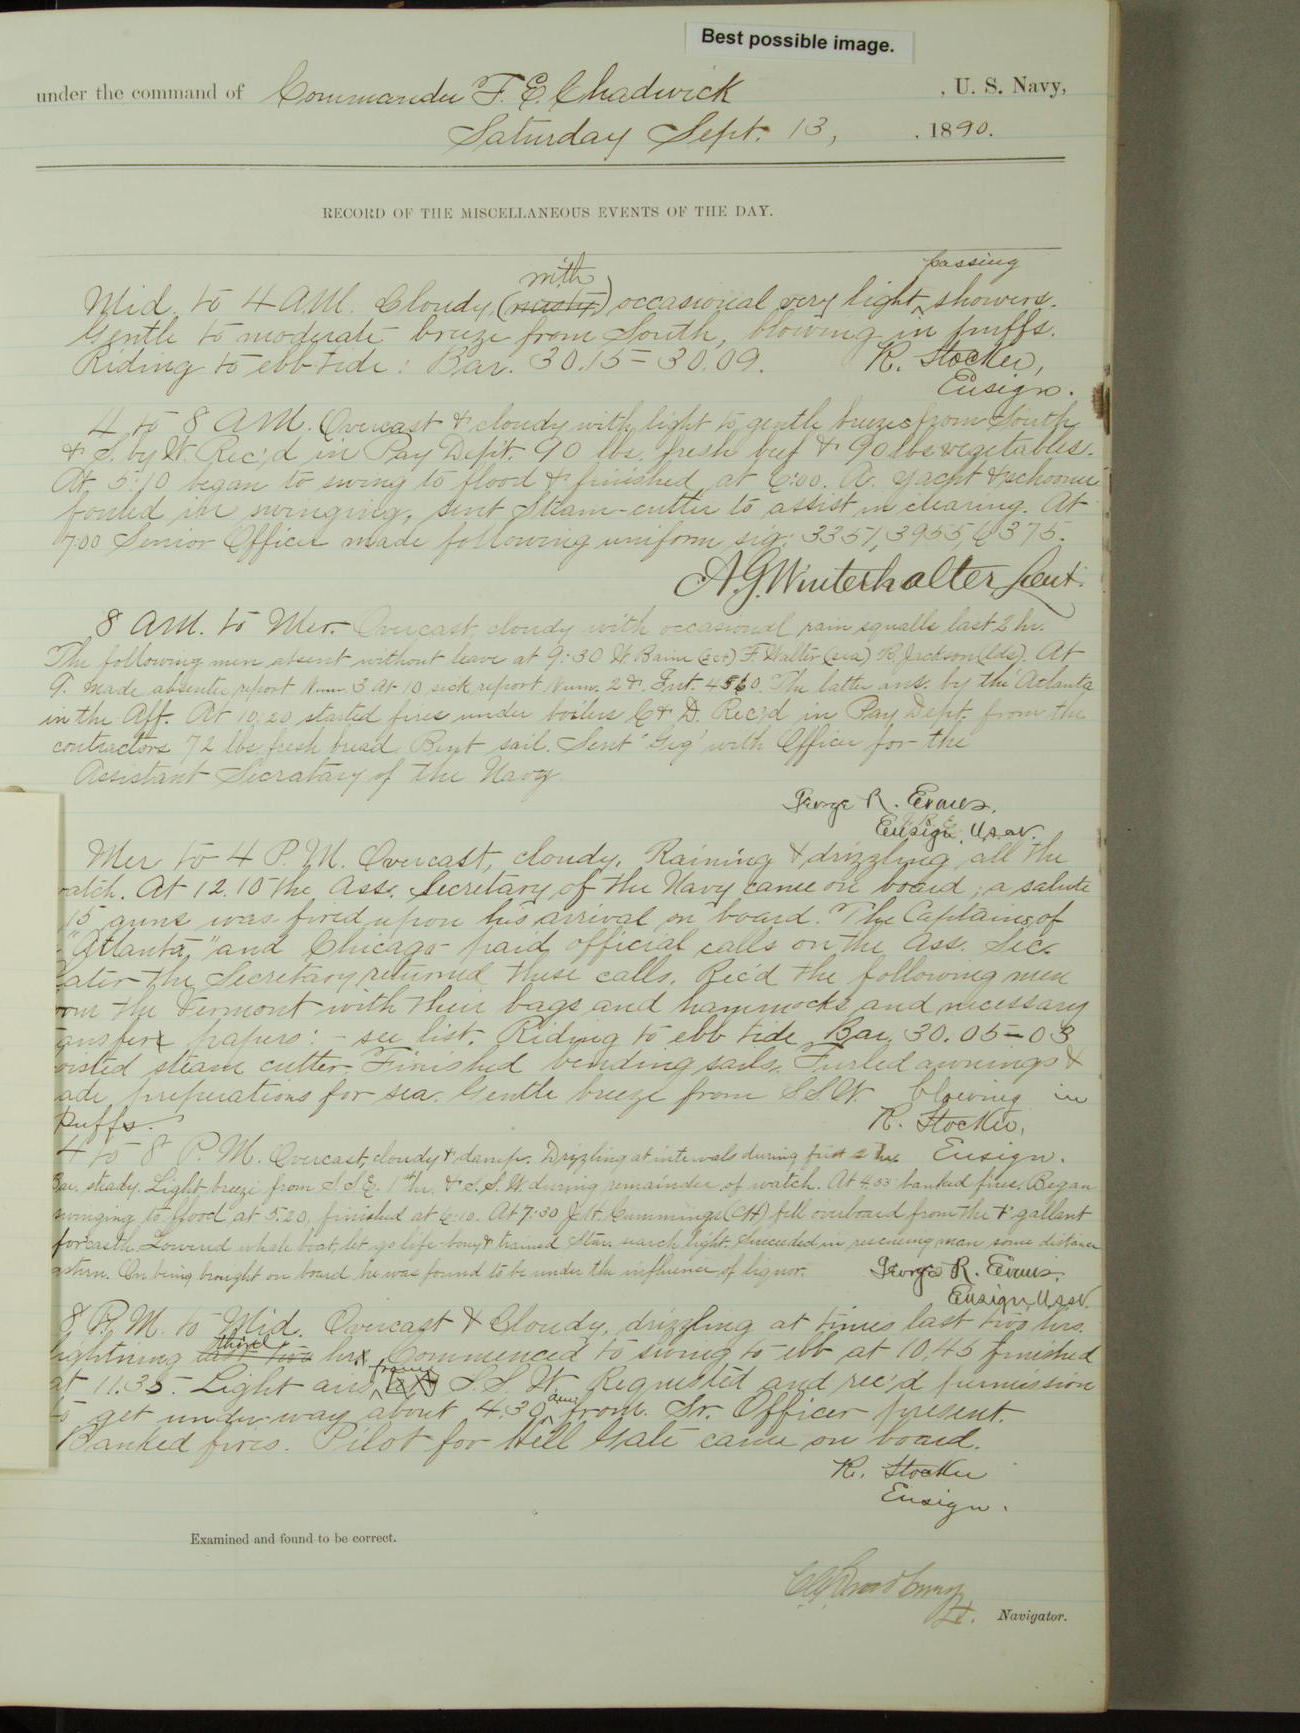 Best possible image.
under the command of Commander F. E. Chadwick , U. S. Navy,
Saturday Sept. 13, , 1890.
RECORD OF THE MISCELLANEOUS EVENTS OF THE DAY.
with passing
Mid. to 4 A.M. Cloudy, (misty) occasional very light showers.
Gentle to moderate breeze from South, blowing in puffs.
Riding to ebb-tide: Bar. 30.15 - 30.09. R. Stocker,
Ensign.
4 to 8 A.M. Overcast & cloudy with light to gentle breezes from South
& S. by W. Rec'd in Pay Dep't. 90 lbs. fresh beef & 90 lbs vegetables.
At 5:10 began to swing to flood & finished at 6:00. A yacht & schooner
fouled in swinging, sent Steam-cutter to assist in clearing. At
7.00 Senior Officer made following uniform sig: 3357, 3955, 6375.
A. G. Winterhalter, Lieut.
8 A.M. to Mer. Overcast, cloudy with occasional rain squalls last 2 hr.
The following men absent without leave at 9:30 W. Baine F. Walter (sea) R. Jackson (lds). At
9. made absentee report Num. 3 At 10 sick report Num. 2 & Int. 4560. The latter ans. by the Atlanta
in the Aff. At 10.20 started fires under boilers C & D. Rec'd in Pay Dept. from the
contractors 72 lbs fresh bread. Bent sail. Sent 'Gig' with Officer for the
Assistant Secratary of the Navy
George R. Evans,
Ensign, U.S.N.
Mer to 4 P.M. Overcast, cloudy. Raining & drizzling all the
atch. At 12.10 the Ass. Secretary of the Navy came on board; a salute
15 guns was fired upon his arrival on board. The Captains of
"Atlanta" and Chicago paid official calls on the Ass. Sec.
ater the Secretary returned these calls. Rec'd the following men
om the Vermont with their bags and hammocks and necessary
ansfer papers: - see list. Riding to ebb tide Bar. 30.05 - 03
oisted steam cutter Finished bending sails. Furled awnings &
ade preparations for sea. Gentle breeze from S.S.W. blowing in
puffs. R. Stocker,
4 to 8 P.M. Overcast, cloudy & damp. Drizzling at intervals during first 2 hrs. Ensign.
Bar. steady. Light breeze from S.S.E. 1st hr. & S.S.W. during remainder of watch. At 4.53 banked fires. Began
swinging to flood at 5.20, finished at 6:10. At 7:30 J. W. Cummings fell overboard from the t' gallant
forcastle. Lowered whale boat, let go life-bouy & trained Star. search light. Succeeded in rescueing man some distance
astern. On being brought on board he was found to be under the influence of liquor. George R. Evans,
Ensign, U.S.N.
8 P.M. to Mid. Overcast & Cloudy, drizzling at times last two hrs.
third
lightning last two hr. Commenced to swing to ebb at 10.45 finished
from
at 11.35. Light airs S.S.W. Requested and rec'd permission
a.m.
to get underway about 4.30 from Sr. Officer present.
Banked fires. Pilot for Hell Gate came on board.
R. Stocker
Ensign.
Examined and found to be correct.
Lt. Navigator.